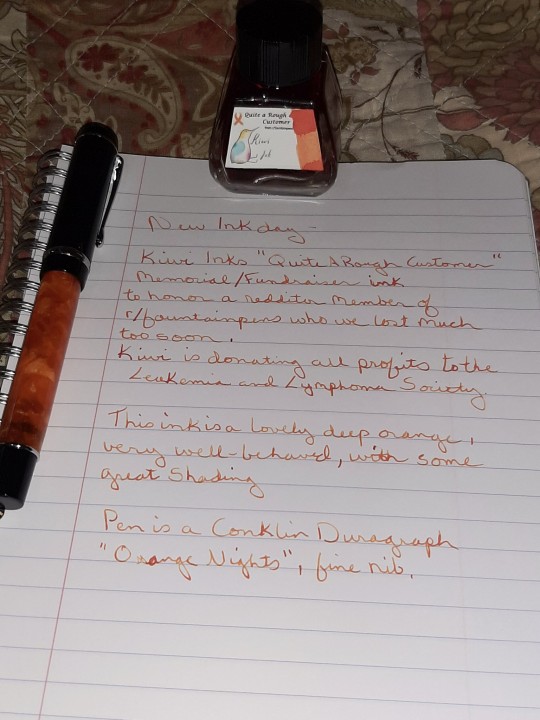 Quite a Rough
Customer
Kiwi
Ink
New Ink day -
Kiwi Inks "Quite A Rough Customer"
Memorial/Fundraiser ink
to honor a redditor member of
r/fountainpens who we lost much
too soon.
Kiwi is donating all profits to the
Leukemia and Lymphoma Society.
This ink is a lovely deep orange,
very well-behaved, with some
great Shading
Pen is a Conklin Duragraph
"Orange Nights", fine nib.